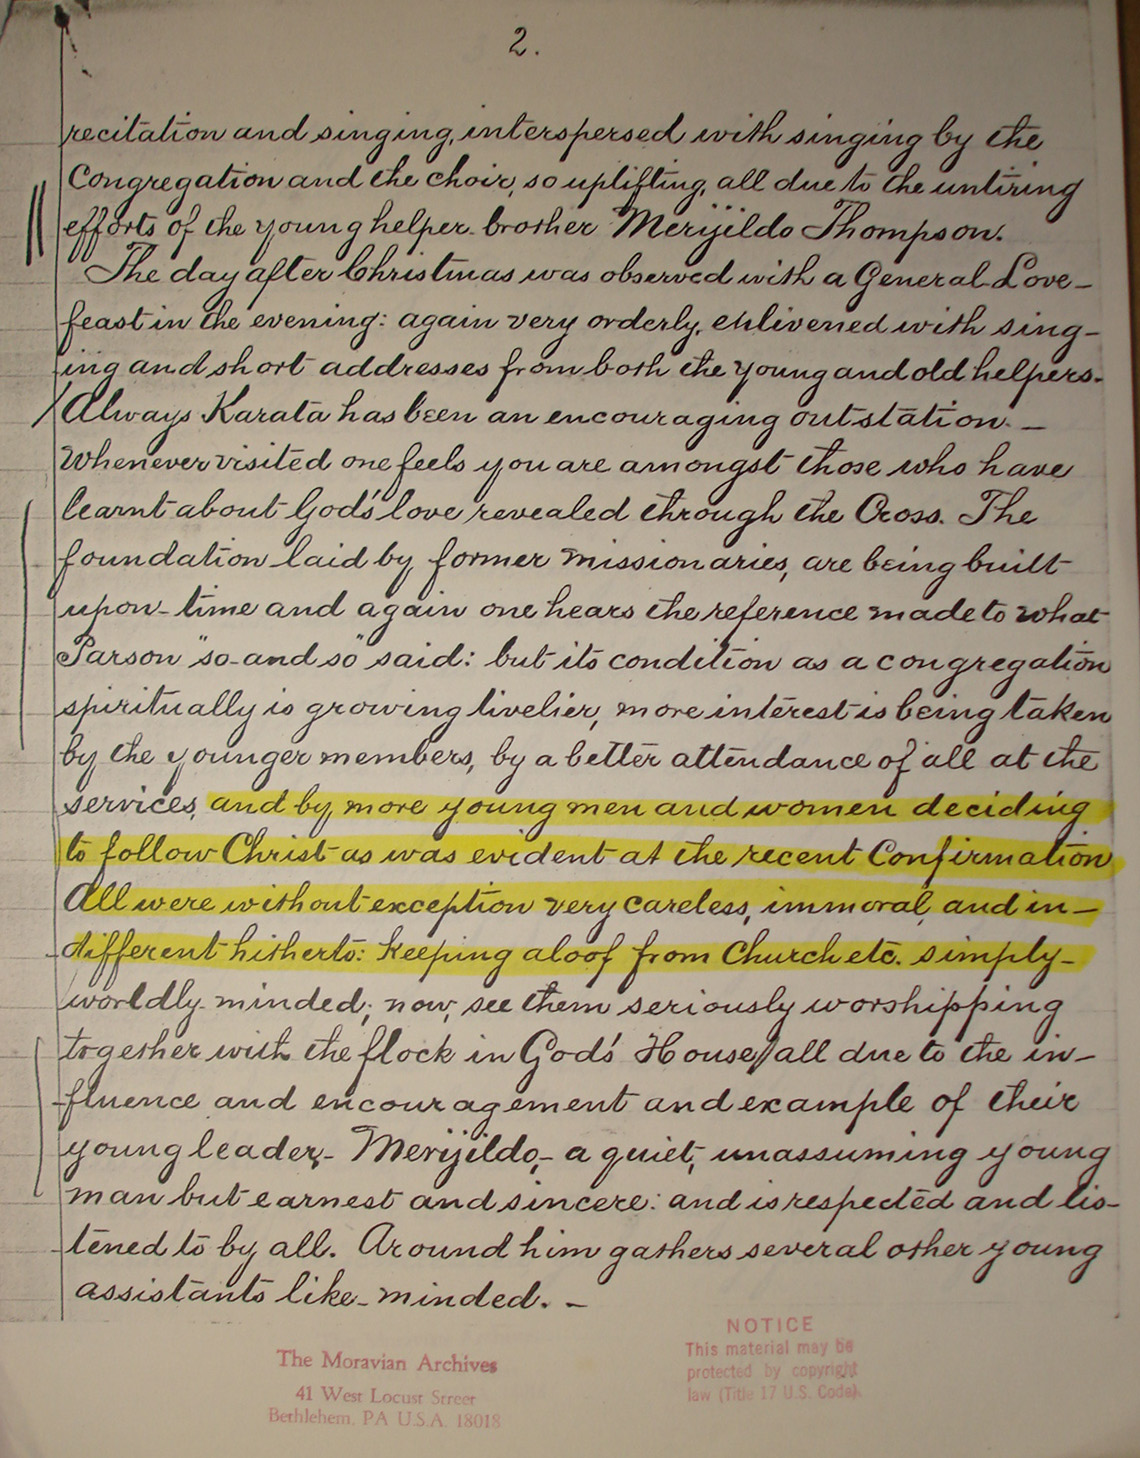 2.
recitation and singing, interspersed with singing by the
Congregation and the choir, so uplifting, all due to the untiring
efforts of the young helper brother Merijildo Thompson.
The day after Christmas was observed with a General Love-
feast in the evening: again very orderly, enlivened with sing-
ing and short addresses from both the young and old helpers.
Always Karata has been an encouraging outstation. -
Whenever visited one feels you are amongst those who have
learnt about God's love revealed through the Cross. The
foundation laid by former missionaries, are being built
upon - time and again one hears the reference made to what
Parson "so-and so" said: but its condition as a congregation
spiritually is growing livelier, more interest is being taken
by the younger members, by a better attendance of all at the
services, and by more young men and women deciding
to follow Christ as was evident at the recent Confirmation
All were without exception very careless, immoral, and in-
different hitherto: keeping aloof from Church etc. simply-
worldly-minded; now, see them seriously worshipping
together with the flock in God's House, all due to the in-
fluence and encouragement and example of their
young leader, - Merijildo, - a quiet, unassuming young
man but earnest and sincere: and is respected and lis-
tened to by all. Around him gathers several other young
assistants like-minded. -
The Moravian Archives
41 West Locust Street
Bethlehem, PA U.S.A. 18018
NOTICE
This material may be
protected by copyright
law (Title 17 U.S. Code).